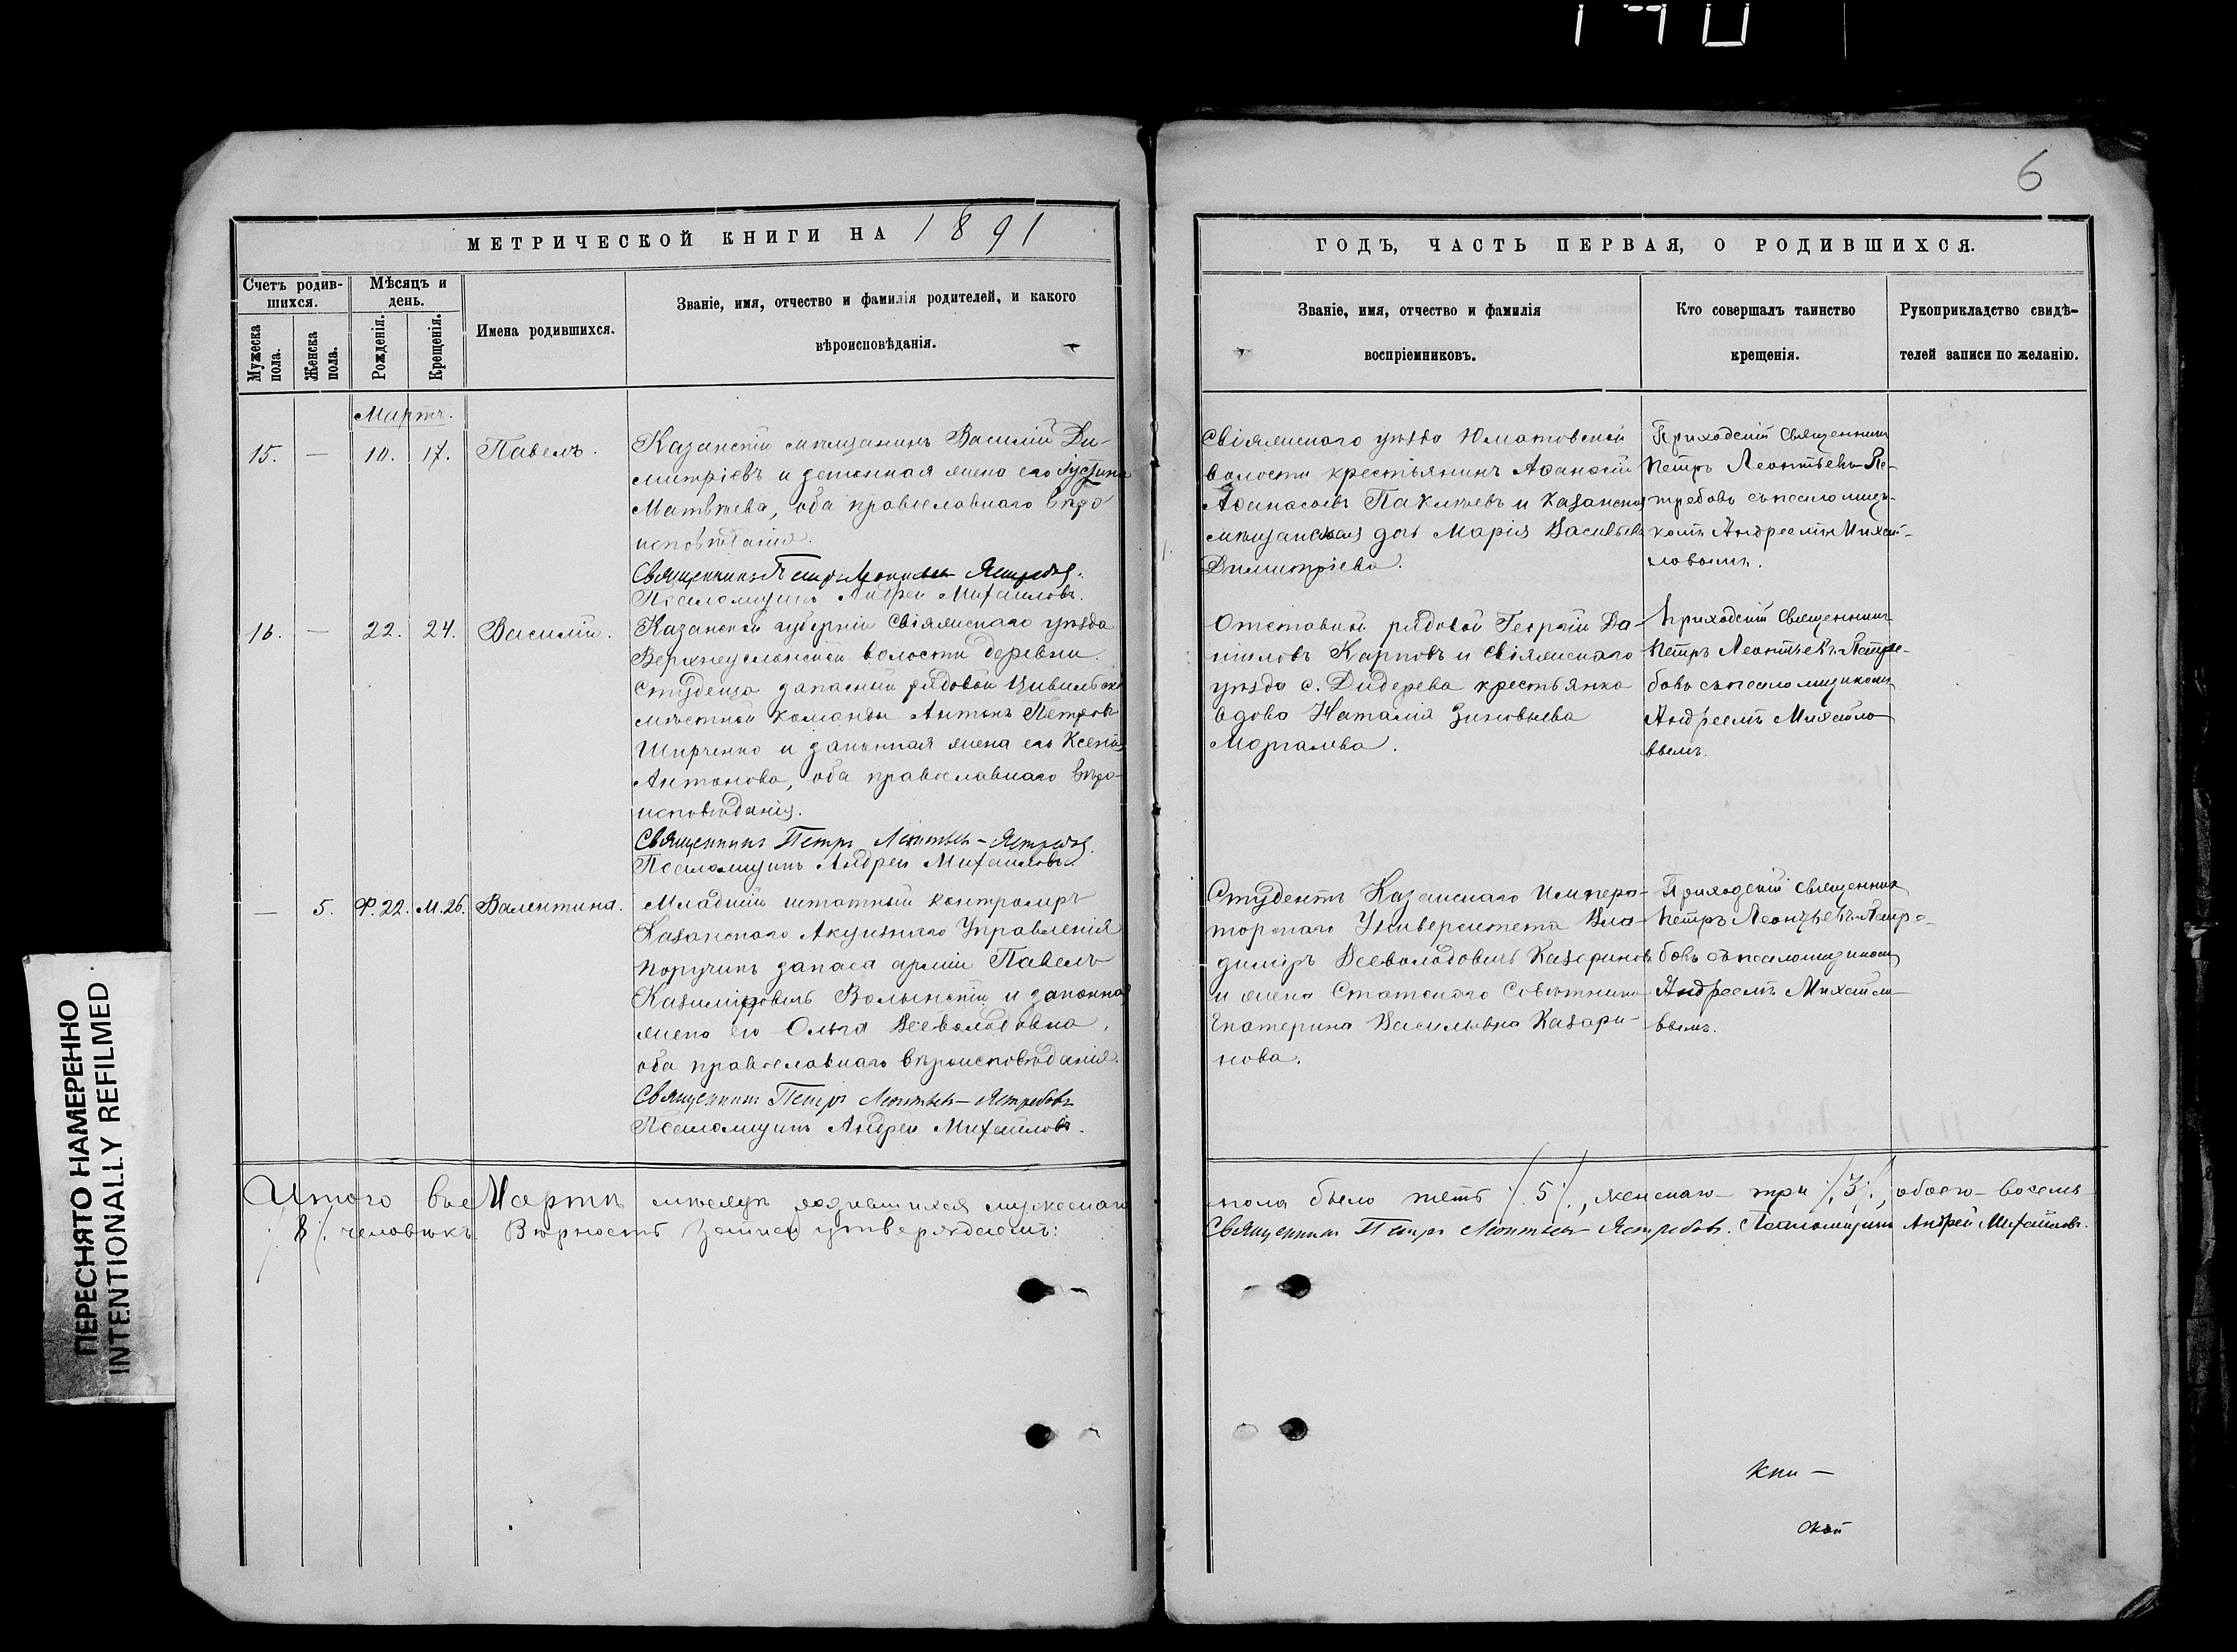 6
МЕТРИЧЕСКОЙ КНИГИ НА 1891
ГОДЪ, ЧАСТЬ ПЕРВАЯ, О РОДИВШИХСЯ.
Счетъ родив-
шихся.
Мужеска
пола.
Женска
пола.
Мѣсяцъ и
день.
Рожденія.
Крещенія.
Имена родившихся.
Званіе, имя, отчество и фамилія родителей, и какого
вѣроисповѣданія.
Званіе, имя, отчество и фамилія
воспріемниковъ.
Кто совершалъ таинство
крещенія.
Рукоприкладство свидѣ-
телей записи по желанію.
Мартъ.
15. — 10. 17. Павелъ.
Казанскій мѣщанинъ Василій Ди-
митріевъ и законная жена его Іустина
Матвѣева, оба православнаго вѣро
исповѣданія.
Священникъ Петръ Леонтьев Ястребов.
Псаломщикъ Андрей Михайловъ.
Свіяжскаго уѣзда Юматовской
волости крестьянинъ Афанасій
Афанасьевъ и Казанская
мѣщанская дочь Марія Васильева
Димитріева.
Приходскій Священникъ
Петръ Леонтьевъ-Яс-
требовъ съ псаломщи-
комъ Андреемъ Михай-
ловымъ.
16. — 22. 24. Василій.
Казанской губерніи Свіяжскаго уѣзда
Верхнеуслонской волости деревни
Студенца запасный рядовой Цивильской
мѣстной команды Антонъ Петровъ
Ширченко и законная жена его Ксенія
Антонова, оба православнаго вѣро-
исповѣданія.
Священникъ Петръ Леонтьев-Ястребов.
Псаломщикъ Андрей Михайловъ.
Отставной рядовой Георгій Да-
ниловъ Карповъ и Свіяжскаго
уѣзда с. Дидерева крестьянка
вдова Наталія Зиновьева
Моргалева.
Приходскій Священникъ
Петръ Леонтьевъ-Ястре-
бовъ съ псаломщикомъ
Андреемъ Михайло-
вымъ.
— 5. Ф.22. М.26. Валентина.
Младшій штатный контролеръ
Казанскаго Акцизнаго Управленія
Поручикъ запаса арміи Павелъ
Казиміровичъ Волынскій и законная
жена его Ольга Всеволодовна,
оба православнаго вѣроисповѣданія.
Священникъ Петръ Леонтьев-Ястребовъ
Псаломщикъ Андрей Михайловъ.
Студентъ Казанскаго Импера-
торскаго Университета Вла-
диміръ Всеволодовичъ Казариновъ
и жена Статскаго Совѣтника
Екатерина Васильевна Казари-
нова.
Приходскій священникъ
Петръ Леонтьевъ-Ястре-
бовъ съ псаломщикомъ
Андреемъ Михайло-
вымъ.
Итого въ Мартѣ мѣсяцѣ родившихся мужескаго
пола было пять /5/, женскаго — три /3/, обоего — восемь
/8/ человѣкъ. Вѣрность записи утверждаемъ:
Священникъ Петръ Леонтьев Ястребовъ. Псаломщикъ Андрей Михайловъ.
ской
ПЕРЕСНЯТО НАМЕРЕННО
INTENTIONALLY REFILMED